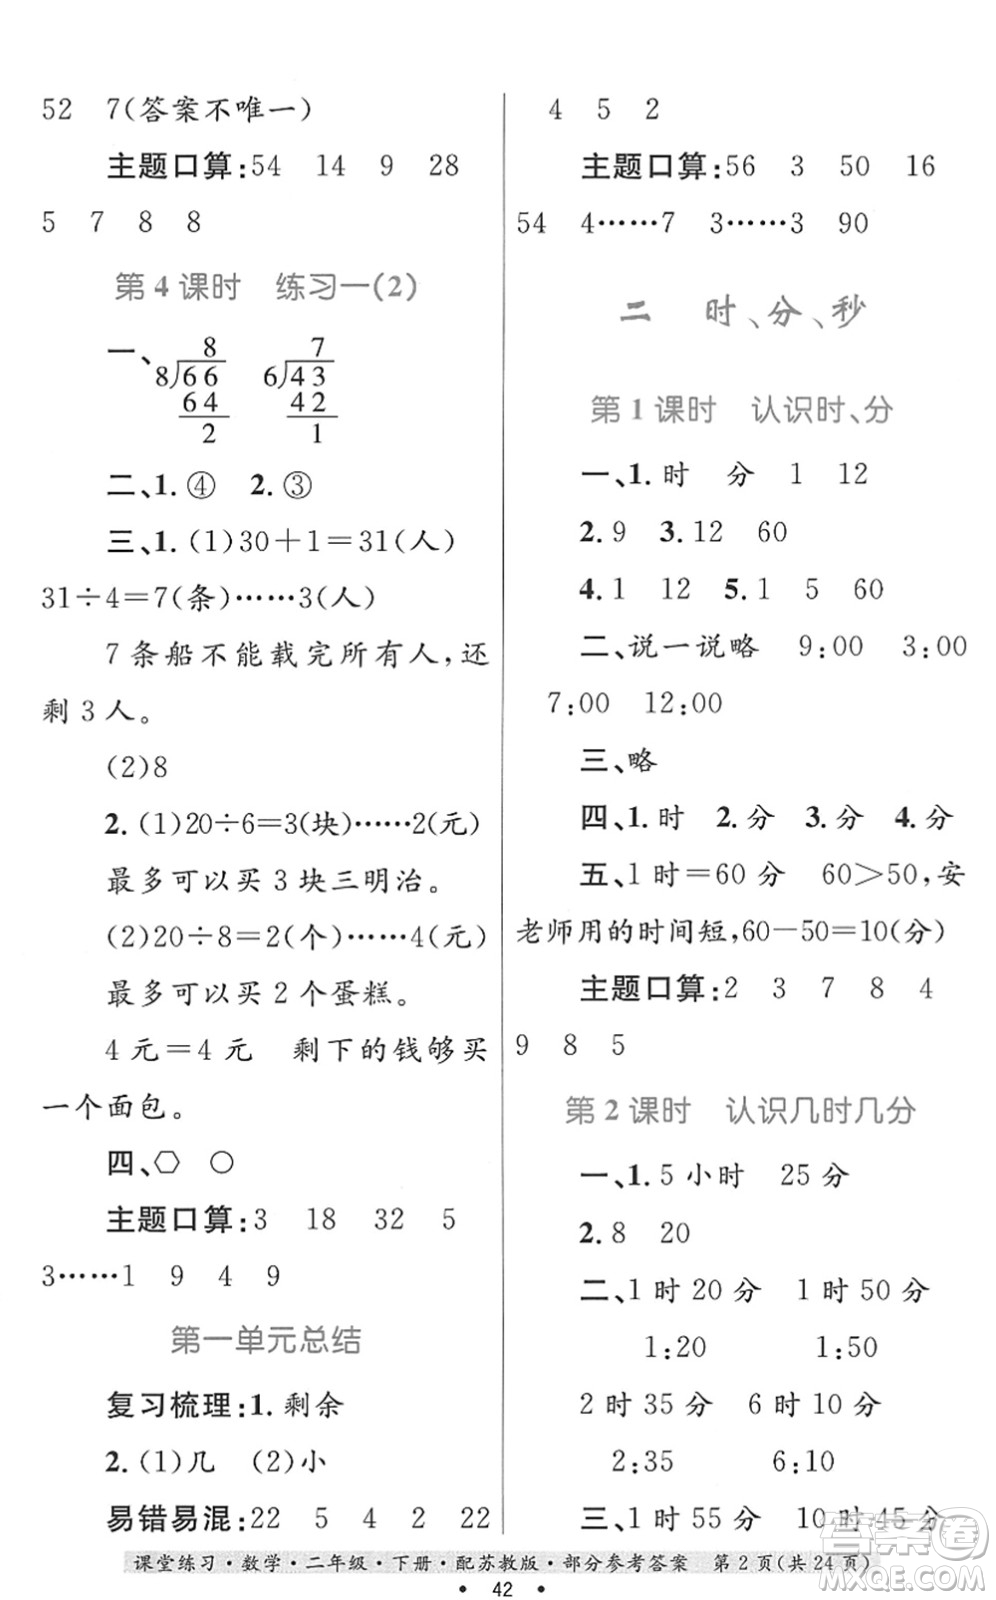 52 7(答案不唯一)
主题口算:54 14 9 28
5 7 8 8
第4课时 练习一(2)
一、
8
8)66
64
2
7
6)43
42
1
二、1.④ 2.③
三、1.(1)30+1=31(人)
31÷4=7(条)……3(人)
7条船不能载完所有人,还
剩3人。
(2)8
2.(1)20÷6=3(块)……2(元)
最多可以买3块三明治。
(2)20÷8=2(个)……4(元)
最多可以买2个蛋糕。
4元=4元 剩下的钱够买
一个面包。
四、⬡ ○
主题口算:3 18 32 5
3……1 9 4 9
第一单元总结
复习梳理:1.剩余
2.(1)几 (2)小
易错易混:22 5 4 2 22
4 5 2
主题口算:56 3 50 16
54 4……7 3……3 90
二 时、分、秒
第1课时 认识时、分
一、1.时 分 1 12
2.9 3.12 60
4.1 12 5.1 5 60
二、说一说略 9:00 3:00
7:00 12:00
三、略
四、1.时 2.分 3.分 4.分
五、1时=60分 60>50,安
老师用的时间短,60-50=10(分)
主题口算:2 3 7 8 4
9 8 5
第2课时 认识几时几分
一、1.5小时 25分
2.8 20
二、1时20分 1时50分
1:20 1:50
2时35分 6时10分
2:35 6:10
三、1时55分 10时45分
课堂练习·数学·二年级·下册·配苏教版·部分参考答案 第2页(共24页)
• 42 •
答案圈
MXQE.COM